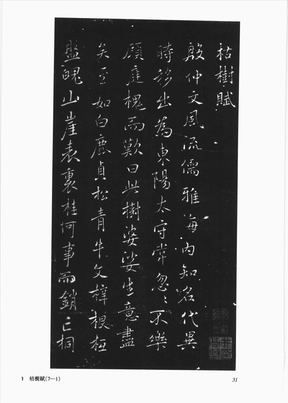 枯樹賦
殷仲文風流儒雅海内知名代異
時移出為東陽太守常忽忽不樂
顧庭槐而歎曰此樹婆娑生意盡
矣至如白鹿貞松青牛文梓根柢
盤魄山崖表裏桂何事而銷亡桐
1 枯樹賦(7—1)
31